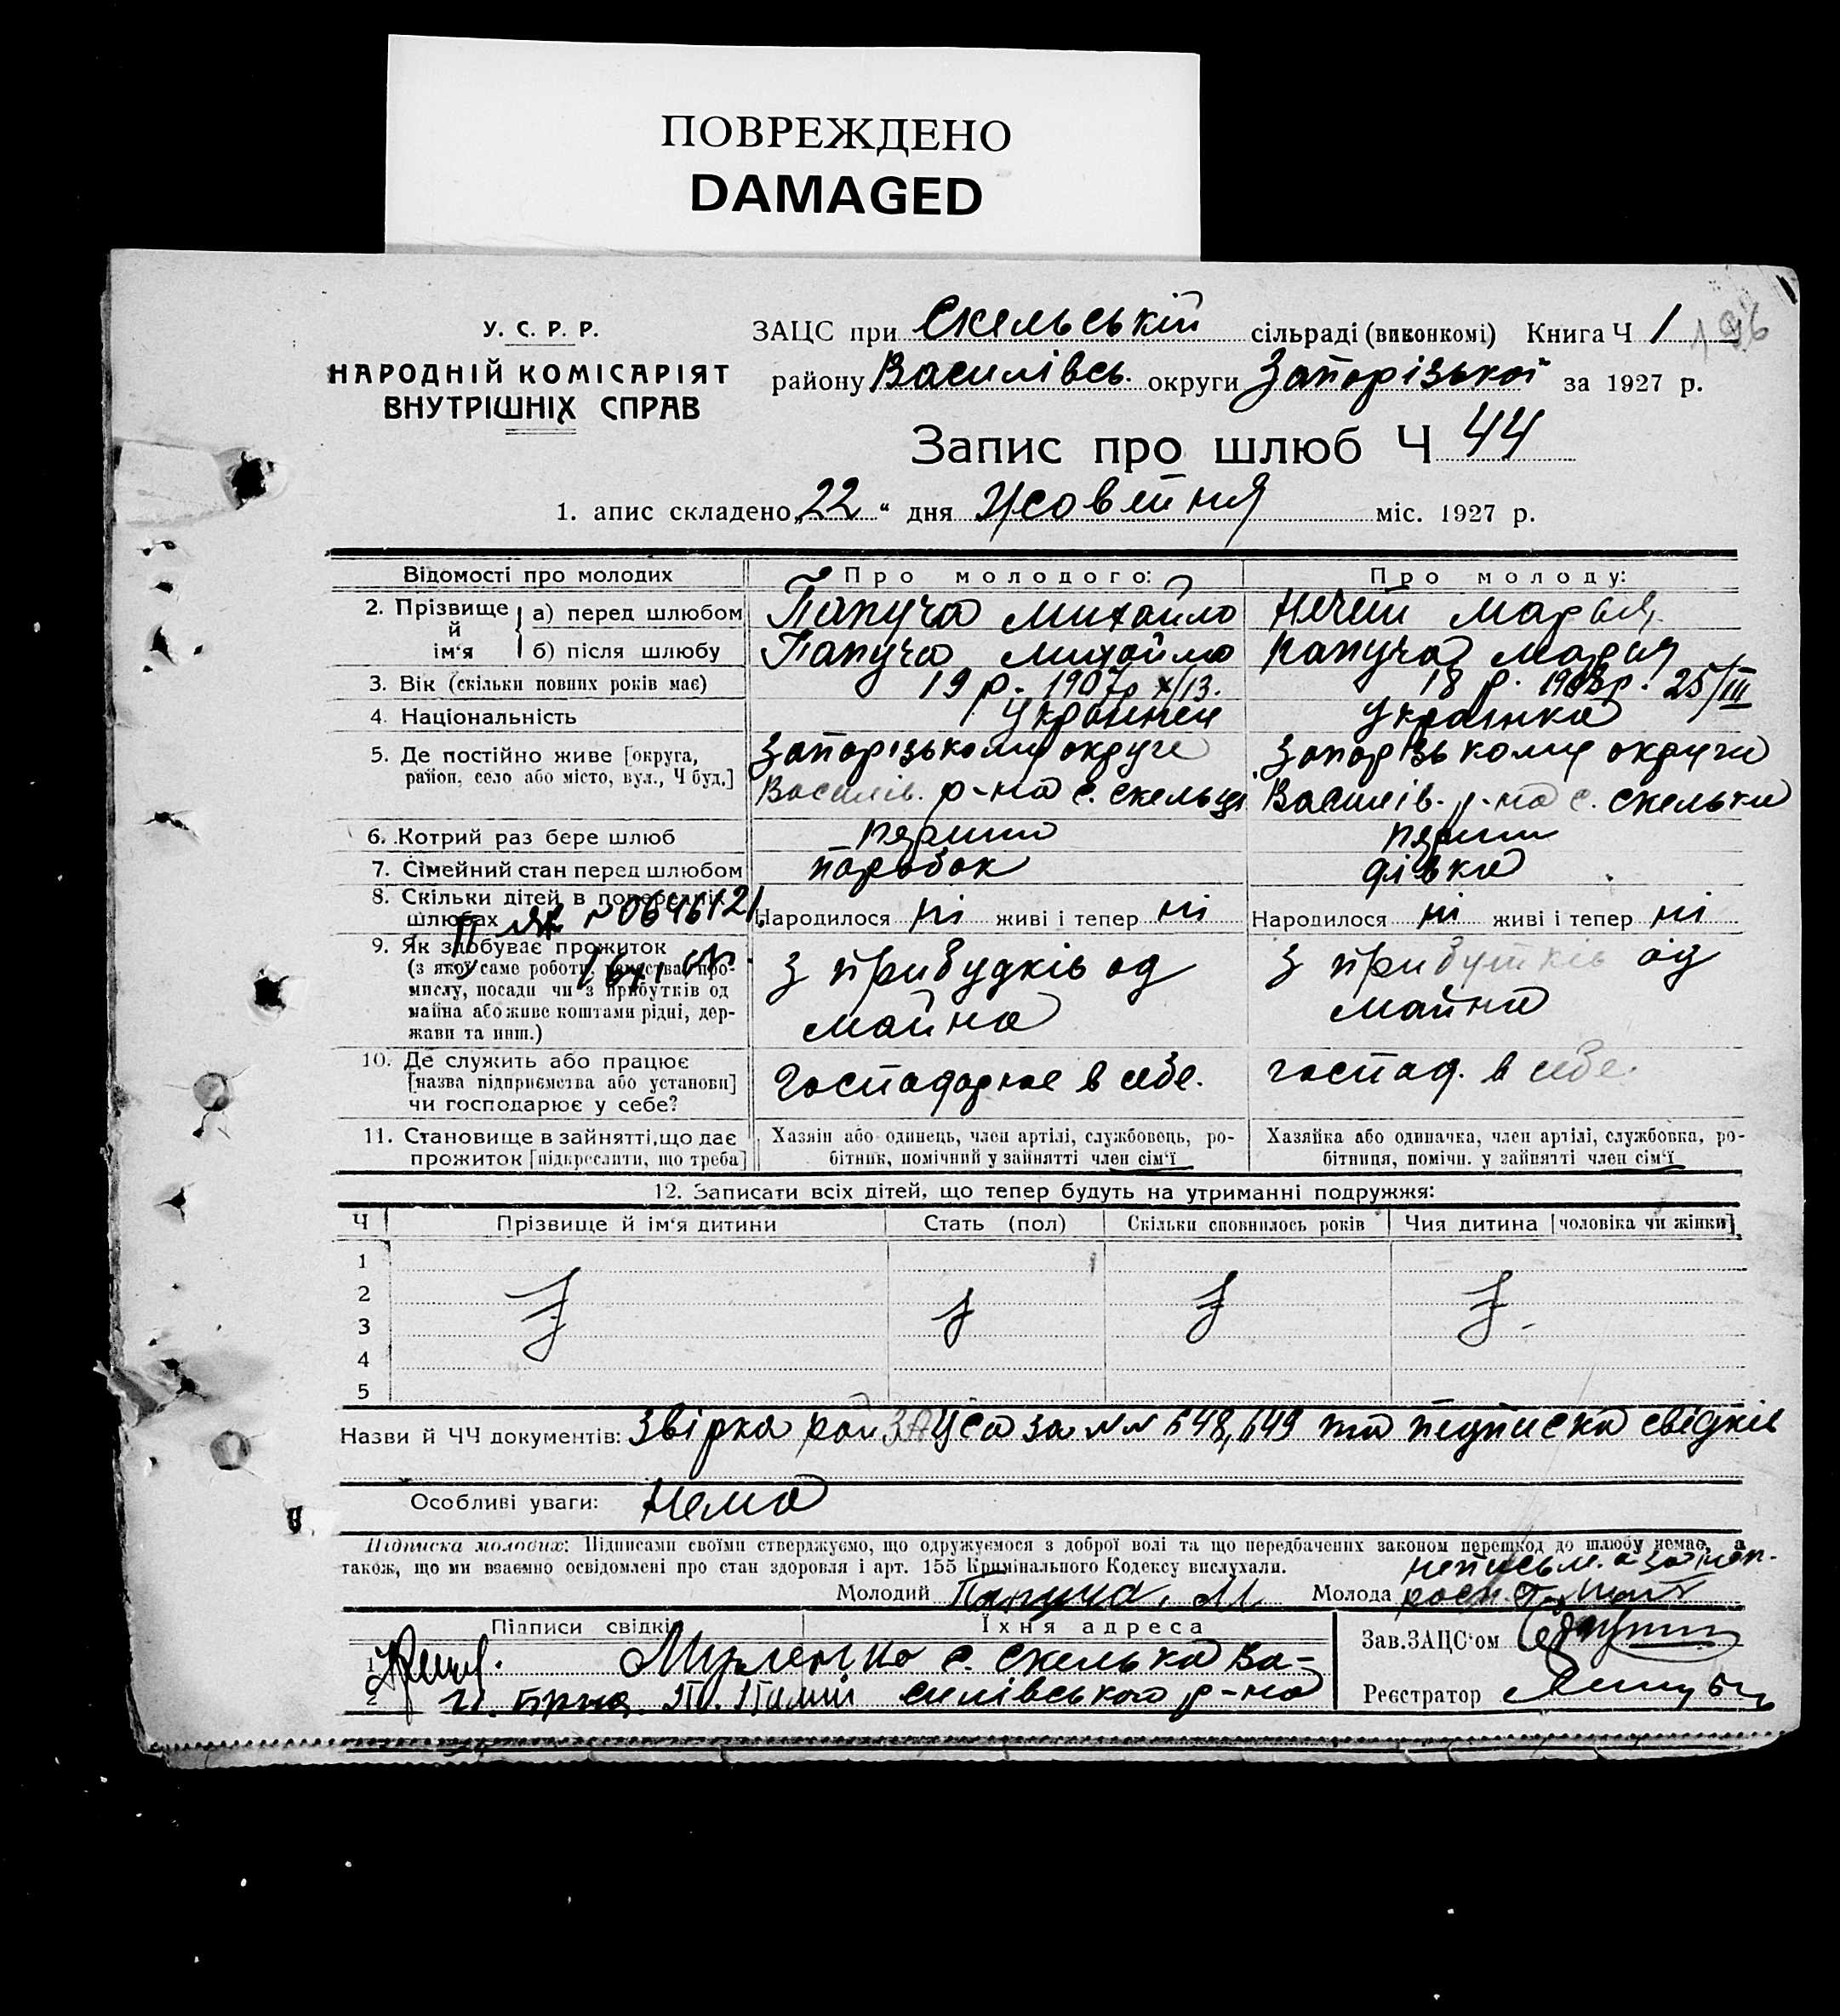 ПОВРЕЖДЕНО
DAMAGED
У. С. Р. Р.
НАРОДНІЙ КОМІСАРІЯТ
ВНУТРІШНІХ СПРАВ
ЗАЦС при Скельській сільраді (виконкомі) Книга Ч 1
району Василівсь. округи Запорізької за 1927 р.
Запис про шлюб Ч 44
1. апис складено „22“ дня Жовтня міс. 1927 р.
Відомості про молодих Про молодого: Про молоду:
2. Прізвище й ім'я а) перед шлюбом Папуча Михайло Нечай Марья
б) після шлюбу Папуча Михайло Папуча Марья
3. Вік (скільки повних років має) 19 р. 1907р X/13. 18 р. 25/III
4. Національність Українець Українка
5. Де постійно живе [округа, район, село або місто, вул., Ч буд.]
Запорізькому округи Василів. р-на с. Скельці
Запорізькому округи Василів. р-на с. Скельки
6. Котрий раз бере шлюб перший перши
7. Сімейний стан перед шлюбом паробок дівка
8. Скільки дітей в попередніх шлюбах Народилося ні живі і тепер ні Народилося ні живі і тепер ні
9. Як здобуває прожиток
(з якої саме роботи, ремества, про-
мислу, посади чи з прибутків од
майна або живе коштами рідні, дер-
жави та инш.)
з прибудків од майна
з прибутків од майна
10. Де служить або працює
[назва підприємства або установи]
чи господарює у себе?
Господорює в себе.
господ. в себе.
11. Становище в зайнятті, що дає
прожиток [підкреслити, що треба]
Хазяїн або одинець, член артілі, службовець, ро-
бітник, помічний у зайнятті член сім'ї
Хазяйка або одиначка, член артілі, службовка, ро-
бітниця, помічн. у зайнятті член сім'ї
12. Записати всіх дітей, що тепер будуть на утриманні подружжя:
Ч Прізвище й ім'я дитини Стать (пол) Скільки сповнилось років Чия дитина [чоловіка чи жінки]
1
2
3
4
5
Назви й ЧЧ документів: Звірка рай ЗАЦСа за №№ 648,649 та підписка свідків
Особливі уваги: Нема
Підписка молодих: Підписами своїми стверджуємо, що одружуємося з доброї волі та що передбачених законом перешкод до шлюбу немає, а
також, що ми взаємно освідомлені про стан здоровля і арт. 155 Кримінального Кодексу вислухали.
Молодий Папуча. М Молода
Підписи свідків Їхня адреса Зав.ЗАЦС'ом
1 с. Скелька Ва-
2 силівського р-на Реєстратор